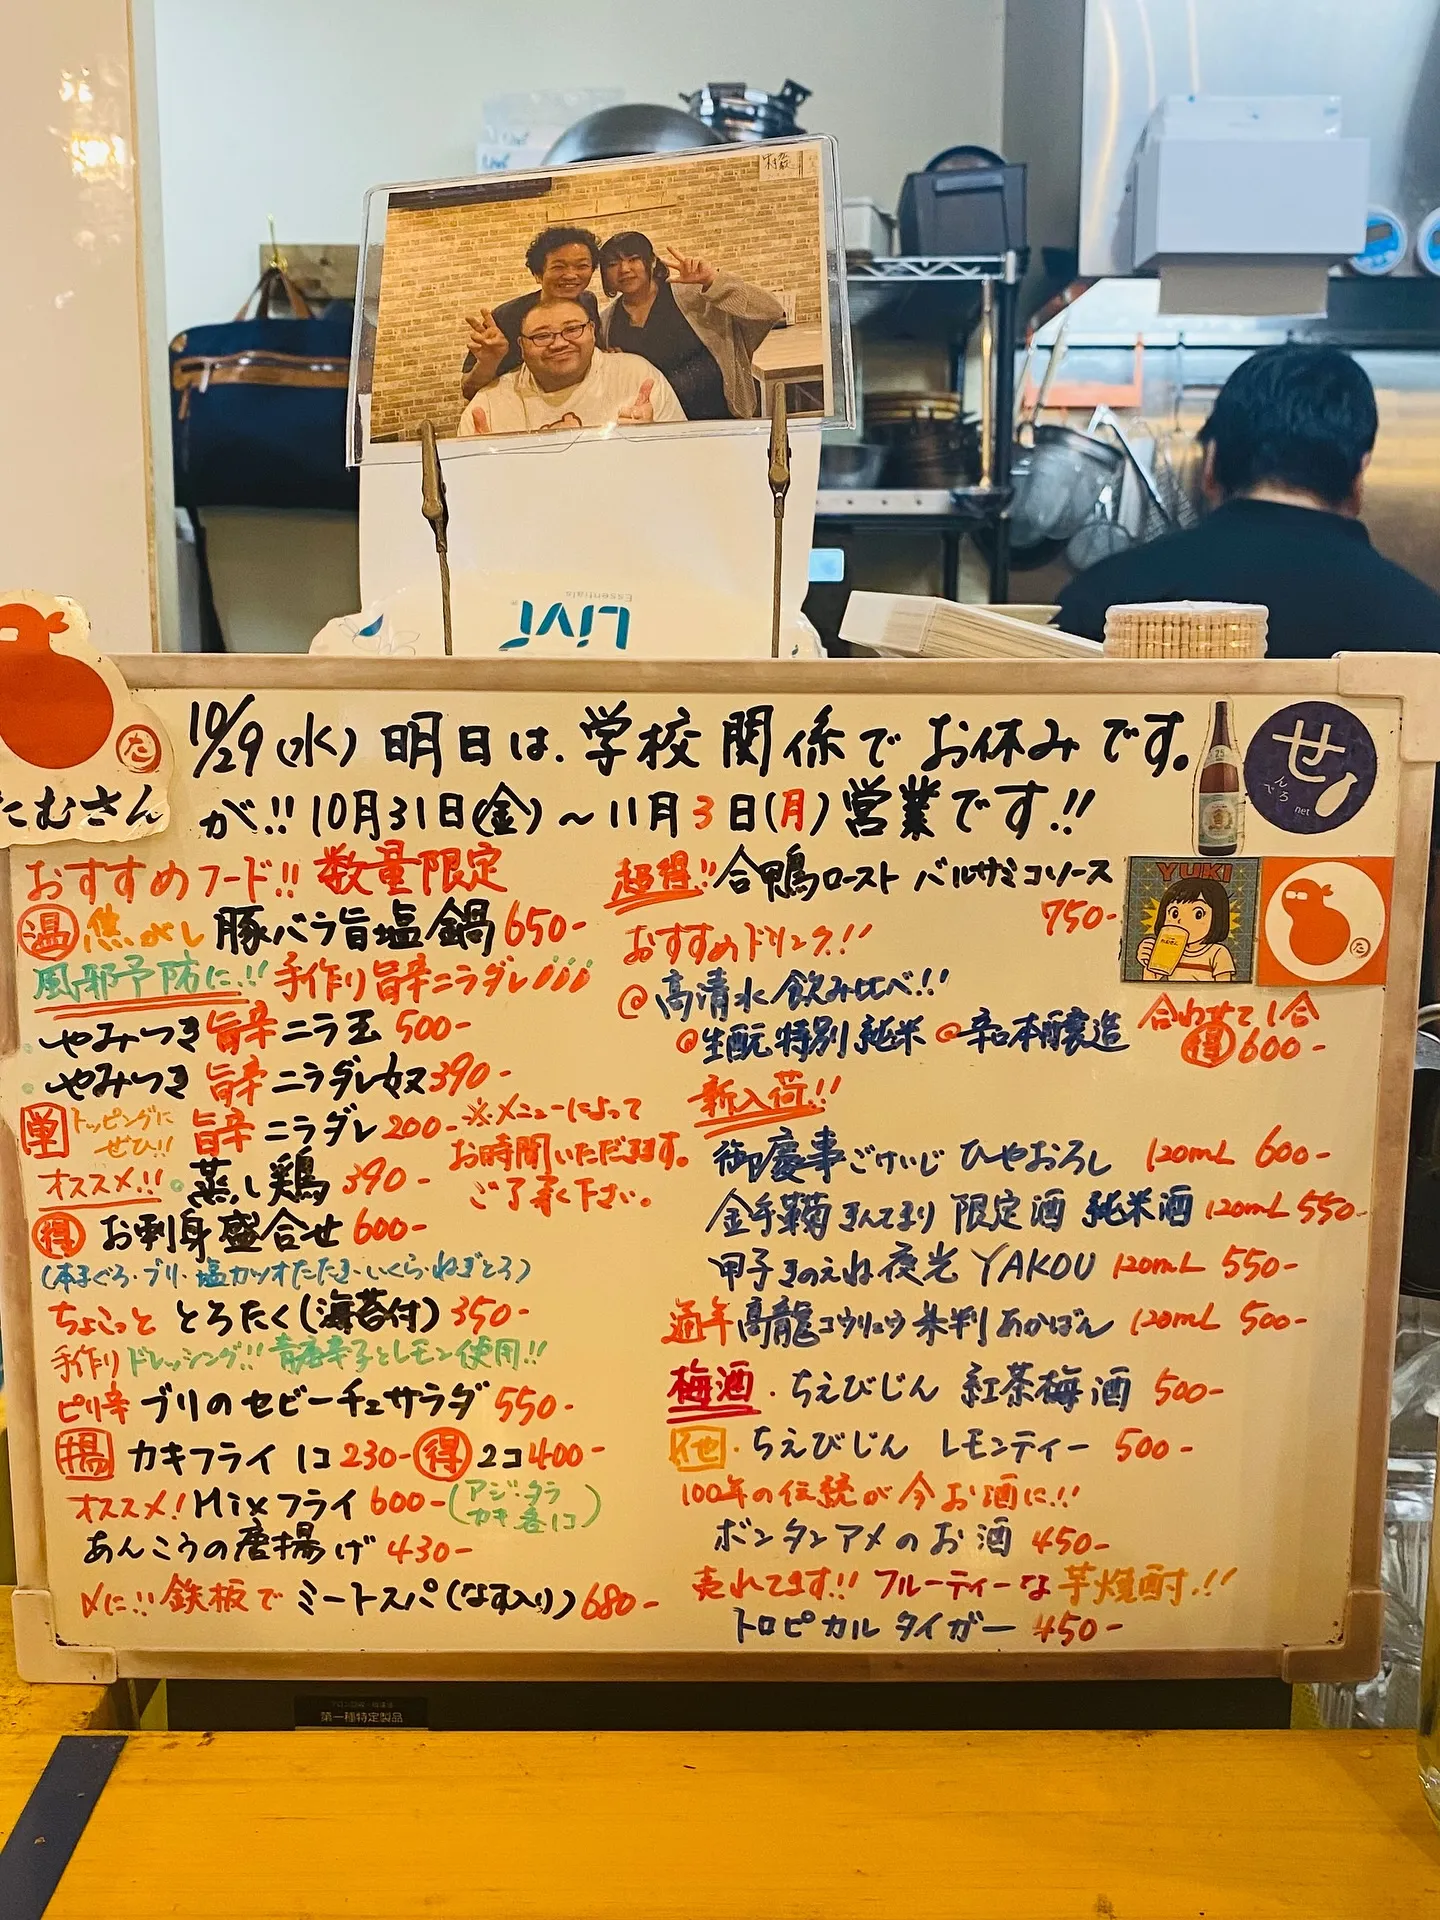 10/29(水) 明日は.学校関係でお休みです。
が!!10月31日(金)~11月3日(月)営業です!!
たむさん
た
せ
んでろ
net
YUKI
た
おすすめフード!! 数量限定
温 焦がし 豚バラ旨塩鍋 650-
風邪予防に!! 手作り旨辛ニラダレ!!!
・やみつき旨辛ニラ玉 500-
・やみつき 旨辛 ニラダレ奴 390-
単 トッピングに ぜひ!! 旨辛 ニラダレ 200-
オススメ!! ・蒸し鶏 390-
※メニューによって
お時間いただきます。
ご了承下さい。
得 お刺身盛合せ 600-
(本まぐろ・ブリ・塩カツオたたき・いくら・ねぎとろ)
ちょこっと とろたく(海苔付) 350-
手作りドレッシング!! 青唐辛子とレモン使用!!
ピリ辛 ブリのセビーチェサラダ 550-
揚 カキフライ 1コ 230- 得 2コ 400-
オススメ! Mixフライ 600- (アジ・タラ カキ 各1コ)
あんこうの唐揚げ 430-
〆に!! 鉄板で ミートスパ(なす入り) 680-
超得!! 合鴨ロースト バルサミコソース
750-
おすすめドリンク!!
@ 高清水 飲み比べ!!
@生酛 特別純米 @辛口本醸造 合わせて1合
得 600-
新入荷!!
御慶事 ごけいじ ひやおろし 120mL 600-
金手鞠 きんてまり 限定酒 純米酒 120mL 550-
甲子 きのえね 夜光 YAKOU 120mL 550-
通年 高龍 コウリュウ 米判 あかばん 120mL 500-
梅酒 ・ちえびじん 紅茶梅酒 500-
他 ・ちえびじん レモンティー 500-
100年の伝統が今お酒に!!
ボンタンアメのお酒 450-
売れてます!! フルーティーな芋焼酎!!
トロピカルタイガー 450-
Livi
Essentials
第一種特定製品